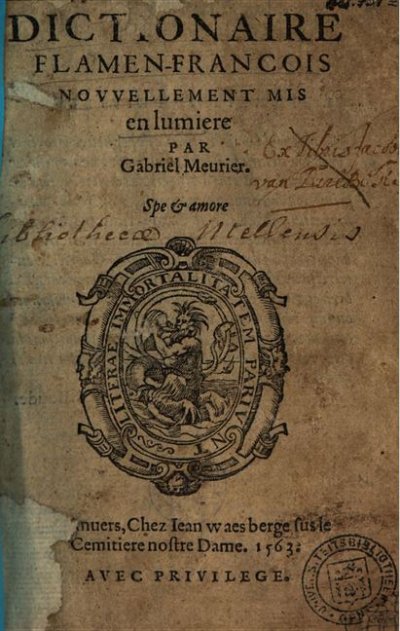 DICTIONAIRE
FLAMEN-FRANCOIS
NOVVELLEMENT MIS
en lumiere
PAR
Gabriel Meurier.
Ex libris Jacob
van
Spe & amore
Bibliothecæ
LITERAE IMMORTALITATEM PARIVNT
nuers, Chez Iean waesberge sus le
Cemitiere nostre Dame. 1563.
AVEC PRIVILEGE.